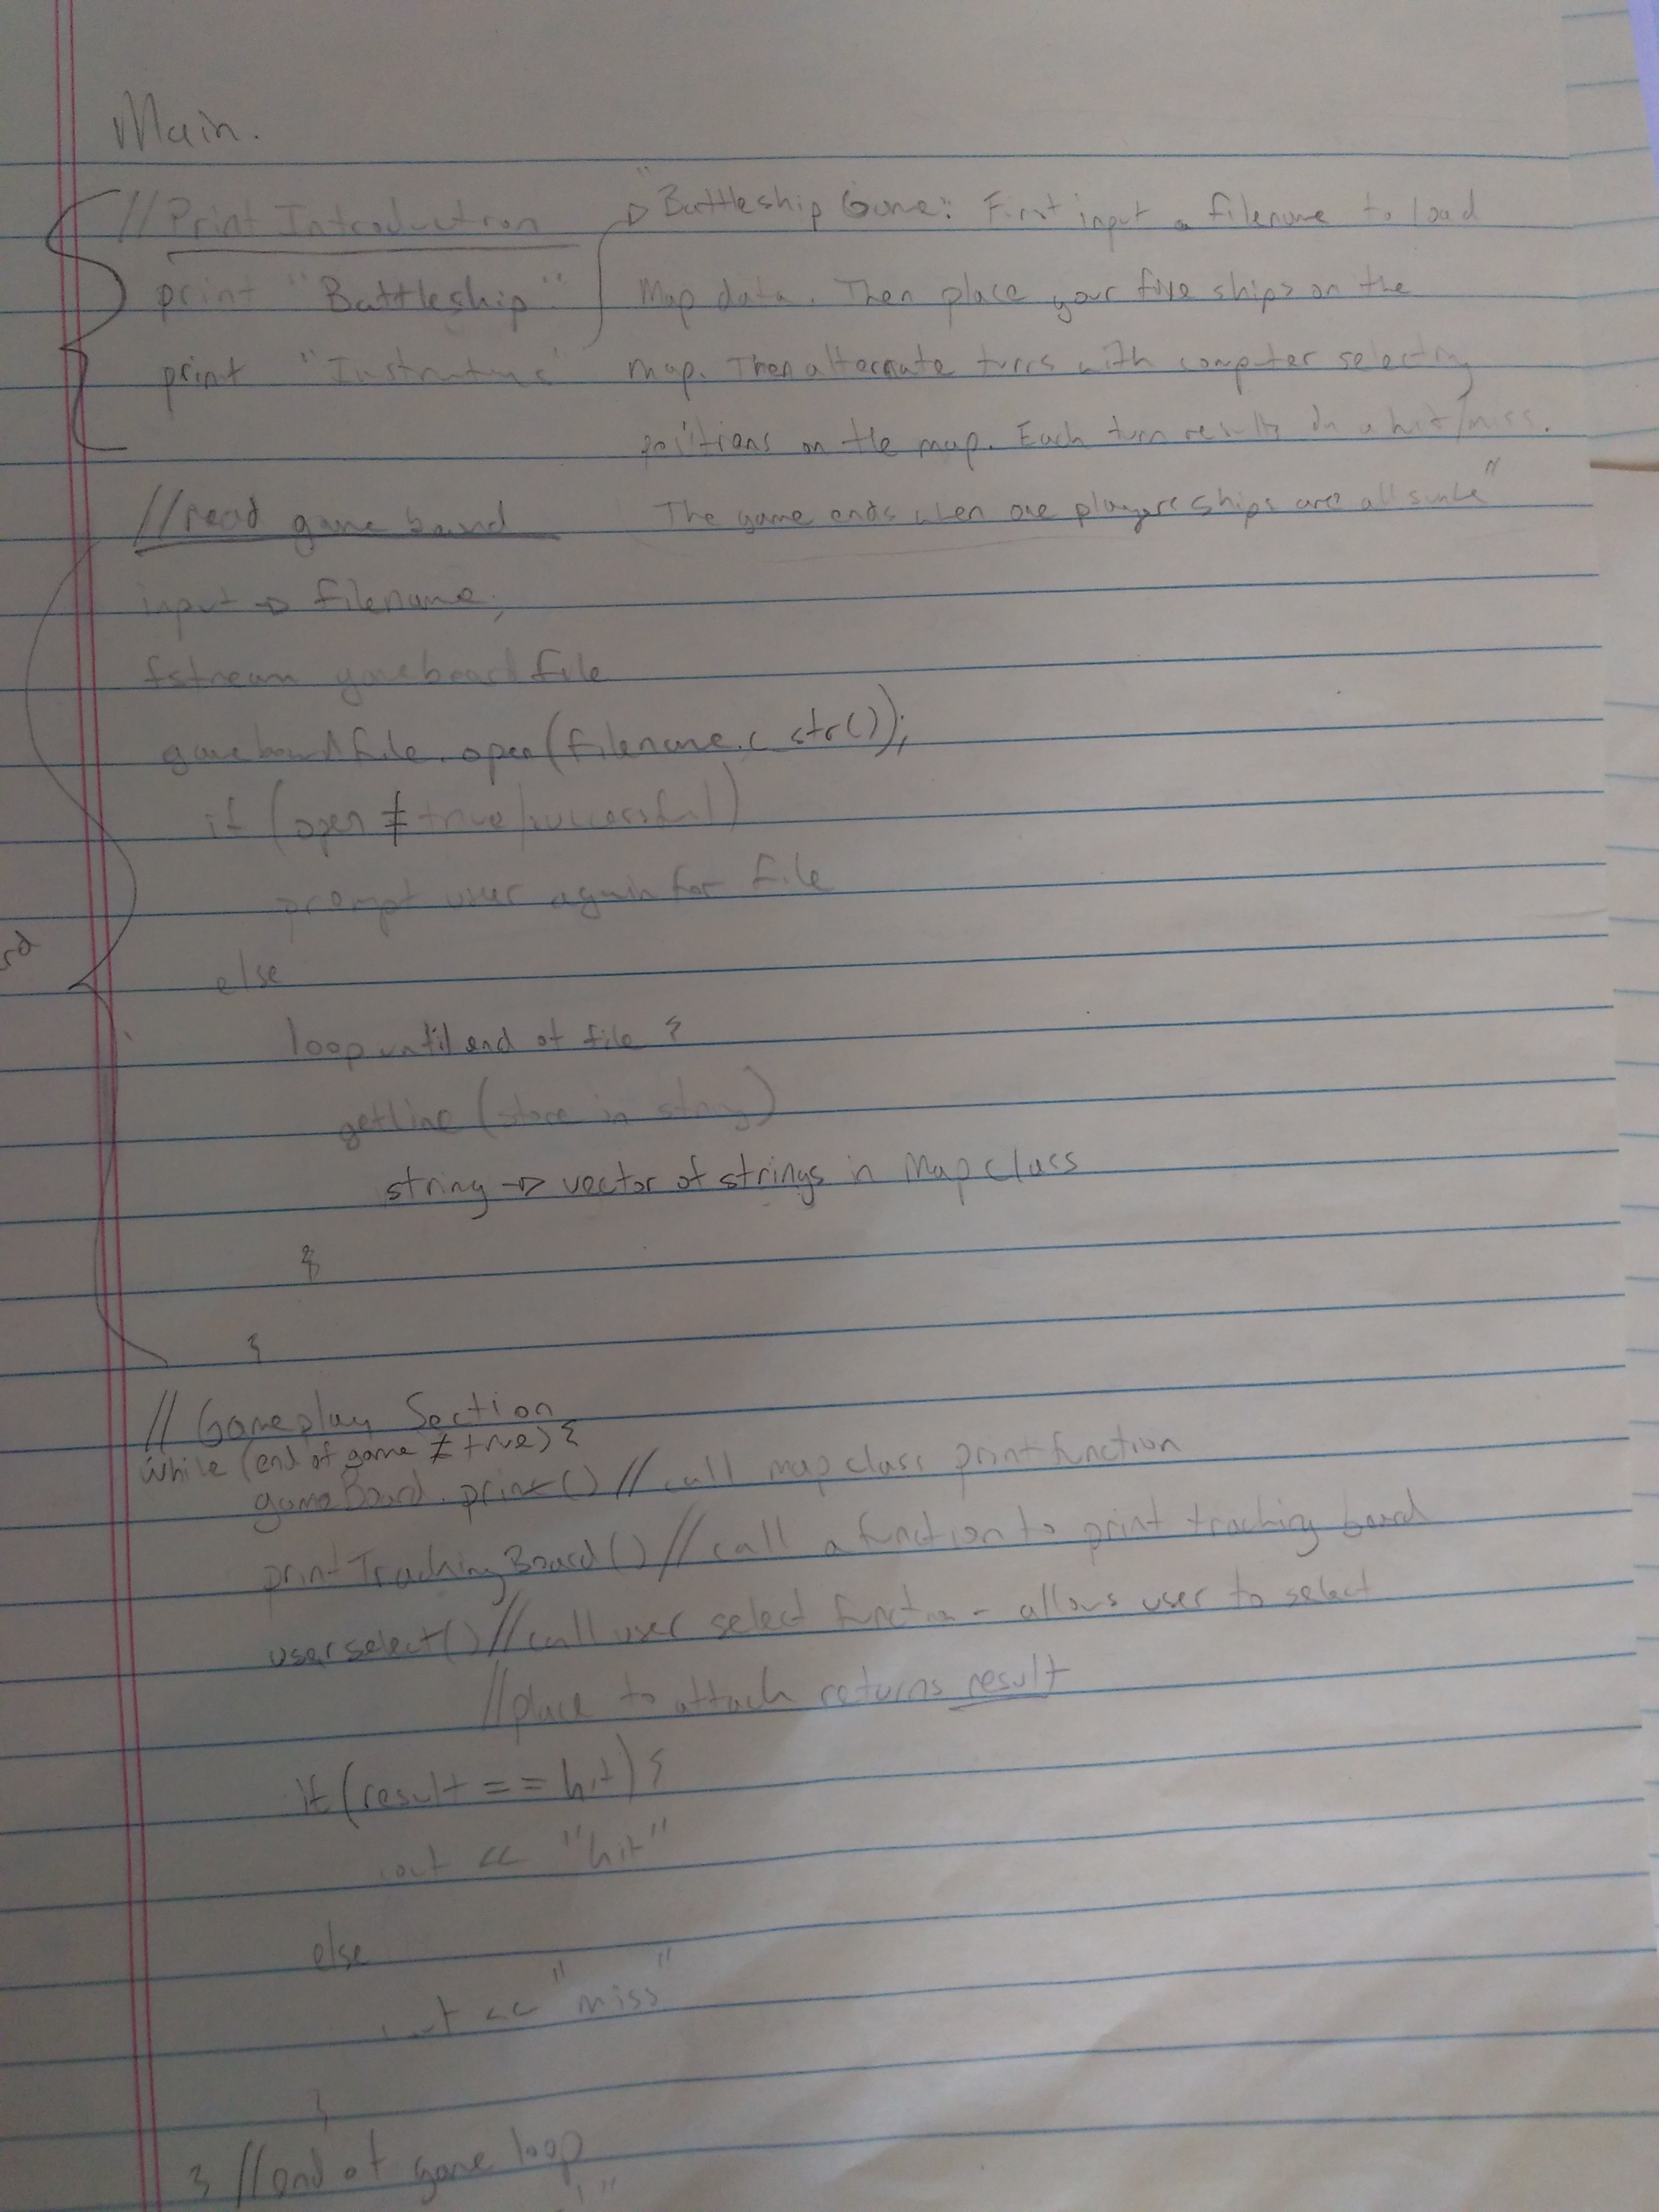 Main.
// Print Introduction
"Battleship Game: First input a filename to load
print "Battleship"
Map data. Then place your five ships on the
print "Instructions"
map. Then alternate turns with computer selecting
positions on the map. Each turn results in a hit/miss.
// read game board
The game ends when one players ships are all sunk"
input → filename;
fstream gameboardfile
gameboardfile.open(filename.c_str());
if (open ≠ true/successful)
prompt user again for file
else
loop until end of file {
getline (store in string)
string → vector of strings in Map class
}
}
// Gameplay Section
while (end of game ≠ true) {
gameBoard.print() // call map class print function
printTrackingBoard() // call a function to print tracking board
userselect() // call user select function - allows user to select
// place to attack returns result
if (result == hit) {
cout << "hit"
else
cout << "miss"
}
} // end of game loop